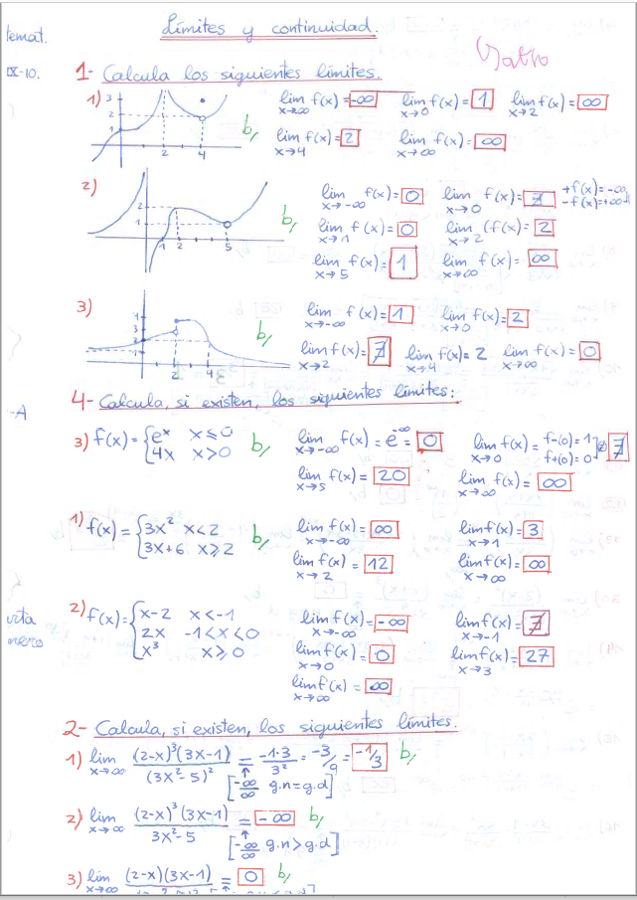 Límites y continuidad.
temat.
IX-10.
1- Calcula los siguientes límites.
1) 3 2 1 2 4 b/
lim x→∞ f(x) = -∞ lim x→0 f(x) = 1 lim x→2 f(x) = ∞
lim x→4 f(x) = 2 lim x→∞ f(x) = ∞
2) 2 1 1 2 5 b/
lim x→-∞ f(x) = 0 lim x→0 f(x) = ∄ +f(x)=-∞ -f(x)=+∞
lim x→1 f(x) = 0 lim x→2 (f(x) = 2
lim x→5 f(x) = 1 lim x→∞ f(x) = ∞
3) 4 3 2 1 2 4 b/
lim x→-∞ f(x) = 1 lim x→0 f(x) = 2
lim x→2 f(x) = ∄ lim x→4 f(x) = 2 lim x→∞ f(x) = 0
-A
4- Calcula, si existen, los siguientes límites:
3) f(x) = { eˣ x≤0 b/ lim x→-∞ f(x) = e^-∞ = 0 lim x→0 f(x) = f-(0)=1 f+(0)=0 ∄
4x x>0
lim x→5 f(x) = 20 lim x→∞ f(x) = ∞
1) f(x) = { 3x² x<2 b/ lim x→-∞ f(x) = ∞ lim x→1 f(x) = 3
3x+6 x≥2
lim x→2 f(x) = 12 lim x→∞ f(x) = ∞
2) f(x) = { x-2 x<-1 lim x→-∞ f(x) = -∞ lim x→-1 f(x) = ∄
2x -1<x<0
x³ x≥0
lim x→0 f(x) = 0 lim x→3 f(x) = 27
lim f(x) = ∞
2- Calcula, si existen, los siguientes límites.
1) lim x→∞ (2-x)³(3x-1) / (3x²-5)² = -1·3/3² = -3/9 = -1/3 b/
[-∞/∞ g.n=g.d]
2) lim x→∞ (2-x)³(3x-1) / 3x²-5 = -∞ b/
[-∞/∞ g.n>g.d]
3) lim x→∞ (2-x)(3x-1) = 0 b/